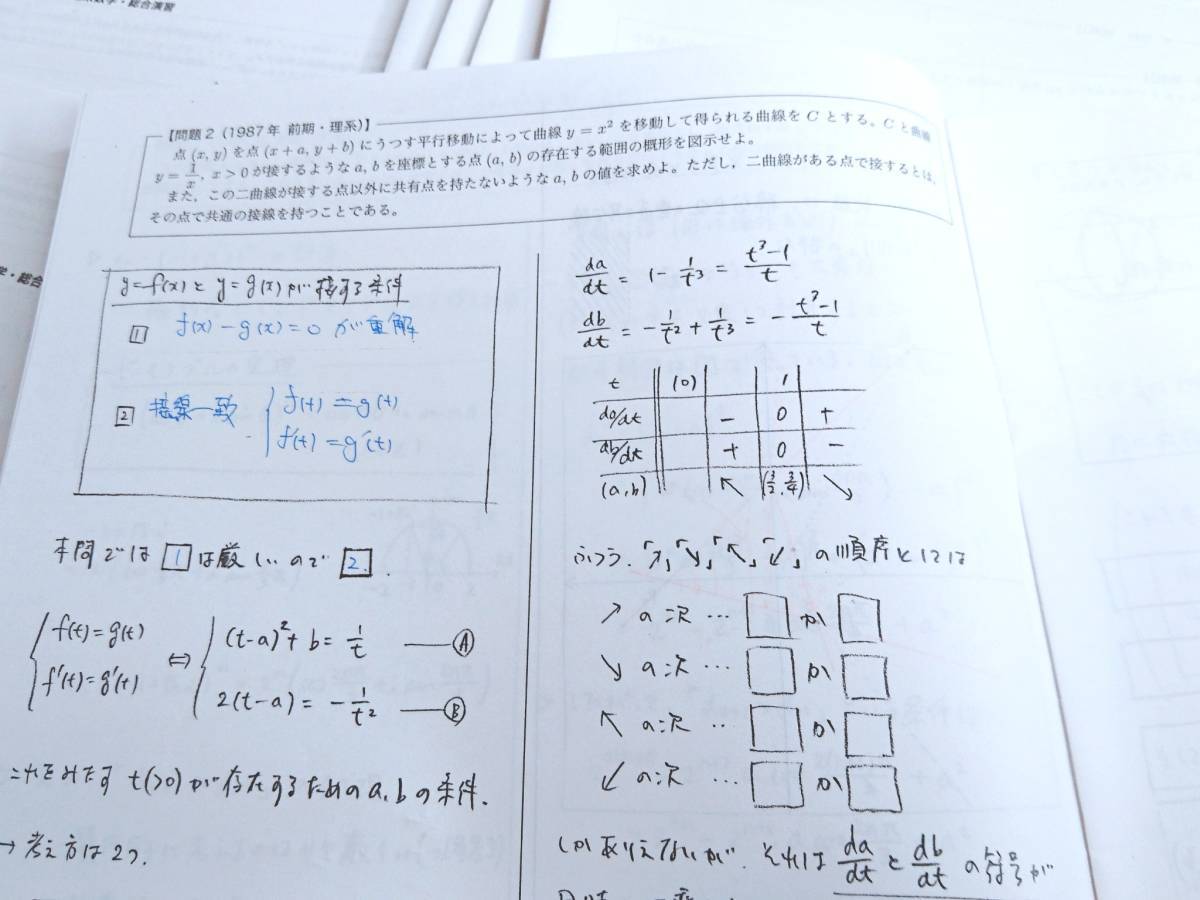 ・総合演習
【問題2(1987年 前期・理系)】
点(x, y)を点(x+a, y+b)にうつす平行移動によって曲線 y = x² を移動して得られる曲線をCとする。Cと曲線
y = 1/x, x > 0 が接するような a, b を座標とする点(a, b)の存在する範囲の概形を図示せよ。
また,この二曲線が接する点以外に共有点を持たないような a, b の値を求めよ。ただし,二曲線がある点で接するとは,
その点で共通の接線を持つことである。
学・総合
y=f(x)と y=g(x)が接する条件
1 f(x)-g(x)=0 が重解
2 接線一致 { f(t)=g(t)
f'(t)=g'(t)
本問では 1 は厳しいので 2.
{ f(t)=g(t) f'(t)=g'(t) ⇔ { (t-a)²+b=1/t ―Ⓐ
2(t-a)=-1/t² ―Ⓑ
これをみたす t(>0)が存在するためのa,bの条件.
→考え方は2つ.
da/dt = 1-1/t³ = t³-1/t
db/dt = -1/t²+1/t³ = -t³-1/t
t (0) 1
da/dt - 0 +
db/dt + 0 -
(a,b) ↖ (3/2, 3/4) ↘
ふつう.「↗」「↘」「↖」「↙」の順序としては
↗の次 … □ か □
↘の次 … □ か □
↖の次 … □ か □
↙の次 … □ か □
しかありえないが. それは da/dt と db/dt の符号が